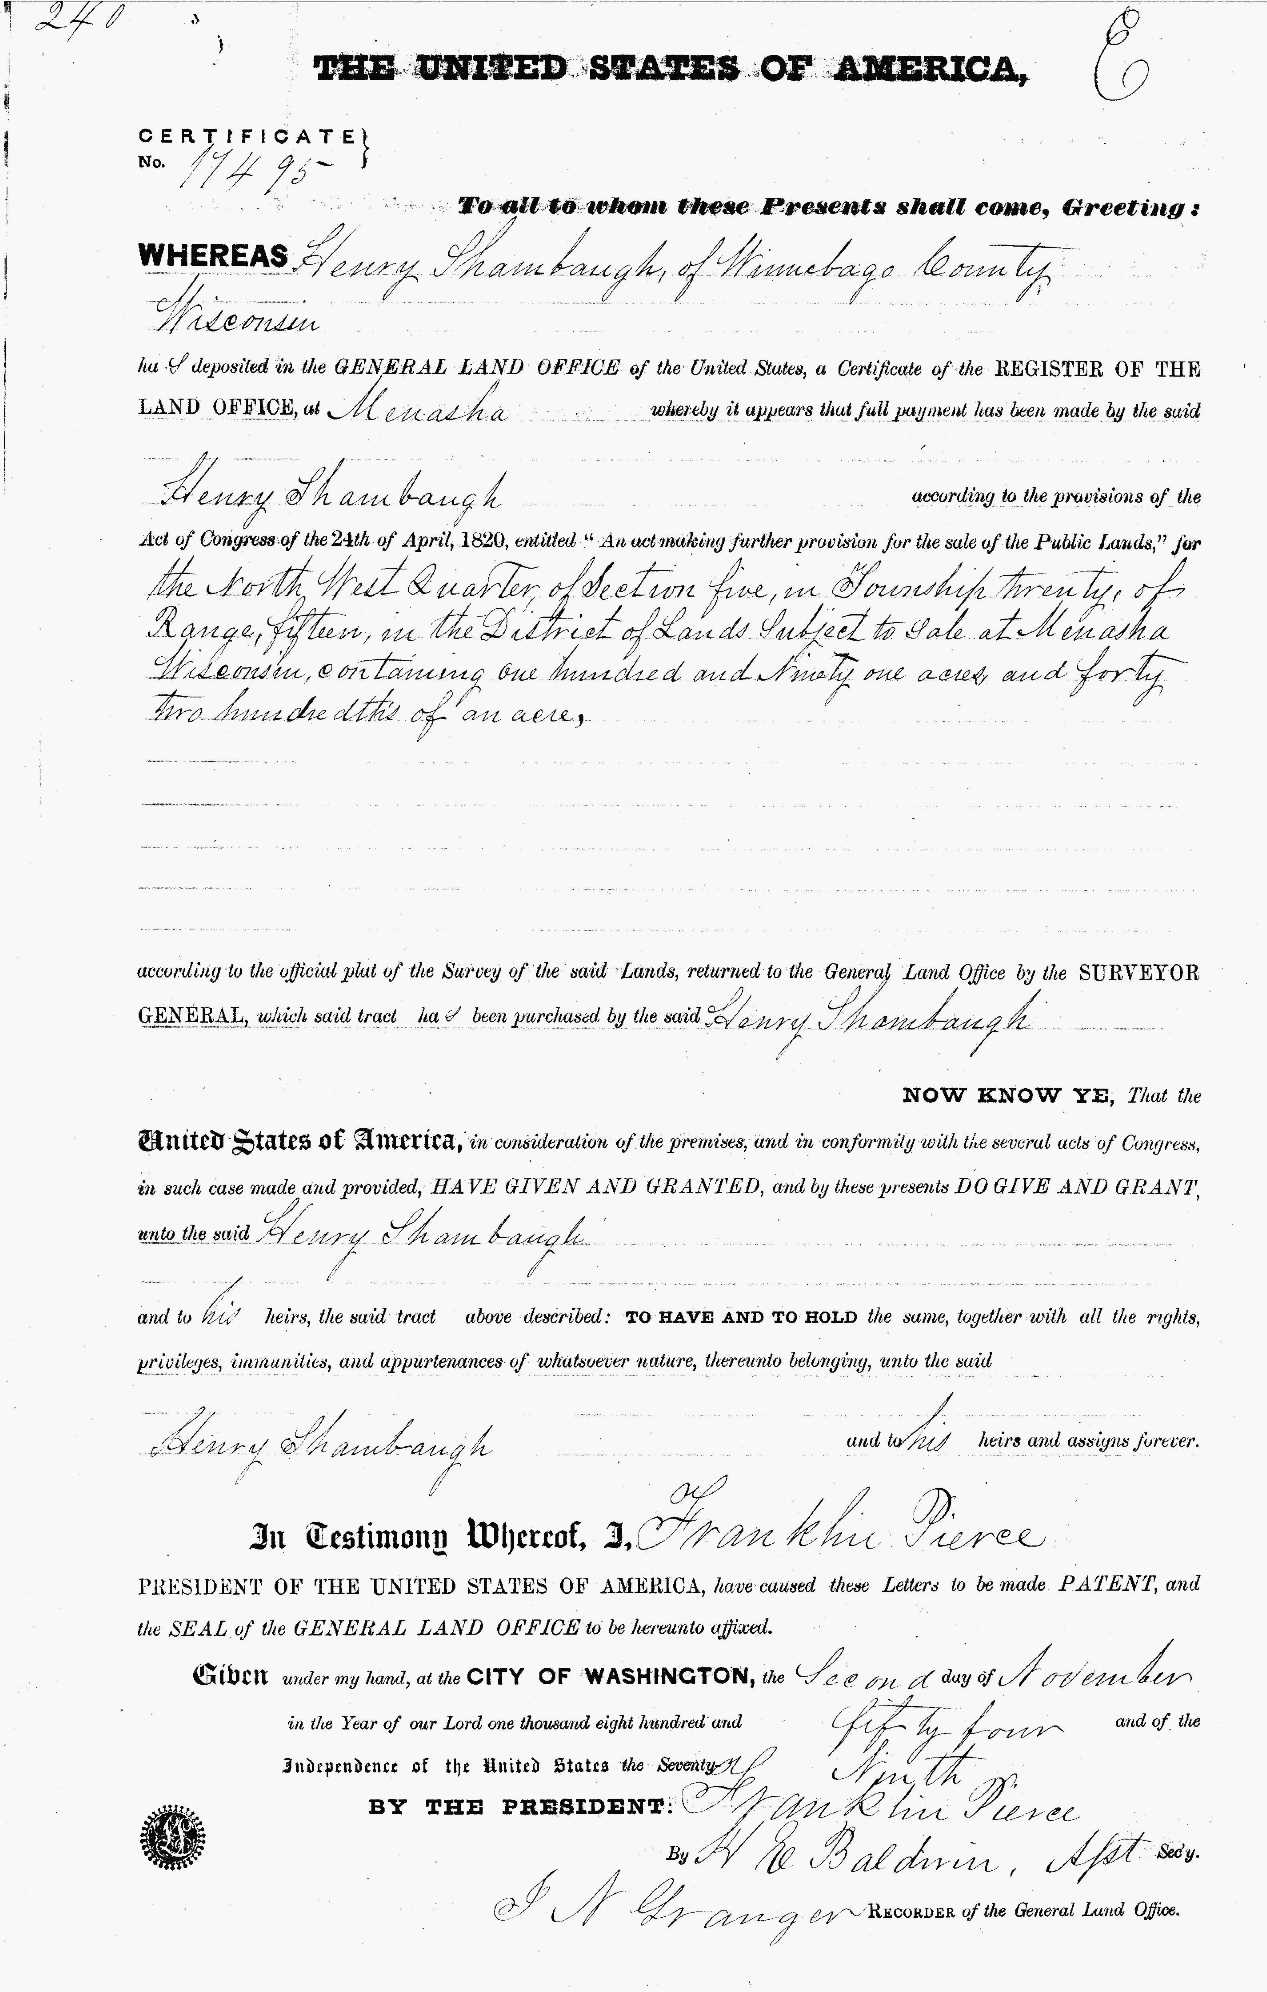 240
E
THE UNITED STATES OF AMERICA,
CERTIFICATE }
No. 17495
To all to whom these Presents shall come, Greeting:
WHEREAS Henry Shambaugh, of Winnebago County
Wisconsin
has deposited in the GENERAL LAND OFFICE of the United States, a Certificate of the REGISTER OF THE
LAND OFFICE, at Menasha whereby it appears that full payment has been made by the said
Henry Shambaugh according to the provisions of the
Act of Congress of the 24th of April, 1820, entitled "An act making further provision for the sale of the Public Lands," for
the North West Quarter, of Section five, in Township twenty, of
Range, fifteen, in the District of Lands Subject to Sale at Menasha
Wisconsin, containing one hundred and Ninety one acres, and forty
two hundredths of an acre,
according to the official plat of the Survey of the said Lands, returned to the General Land Office by the SURVEYOR
GENERAL, which said tract has been purchased by the said Henry Shambaugh
NOW KNOW YE, That the
United States of America, in consideration of the premises, and in conformity with the several acts of Congress,
in such case made and provided, HAVE GIVEN AND GRANTED, and by these presents DO GIVE AND GRANT,
unto the said Henry Shambaugh
and to his heirs, the said tract above described: TO HAVE AND TO HOLD the same, together with all the rights,
privileges, immunities, and appurtenances of whatsoever nature, thereunto belonging, unto the said
Henry Shambaugh and to his heirs and assigns forever.
In Testimony Whereof, I, Franklin Pierce
PRESIDENT OF THE UNITED STATES OF AMERICA, have caused these Letters to be made PATENT, and
the SEAL of the GENERAL LAND OFFICE to be hereunto affixed.
Given under my hand, at the CITY OF WASHINGTON, the Second day of November
in the Year of our Lord one thousand eight hundred and fifty four and of the
Independence of the United States the Seventy Ninth
BY THE PRESIDENT: Franklin Pierce
By H E Baldwin, Asst Sec'y.
J N Granger RECORDER of the General Land Office.